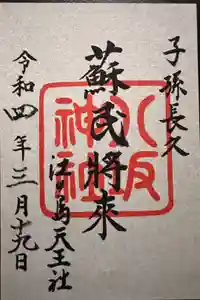 子孫長久
蘇民將來
江ノ島天王社
令和四年三月十九日
八坂神社